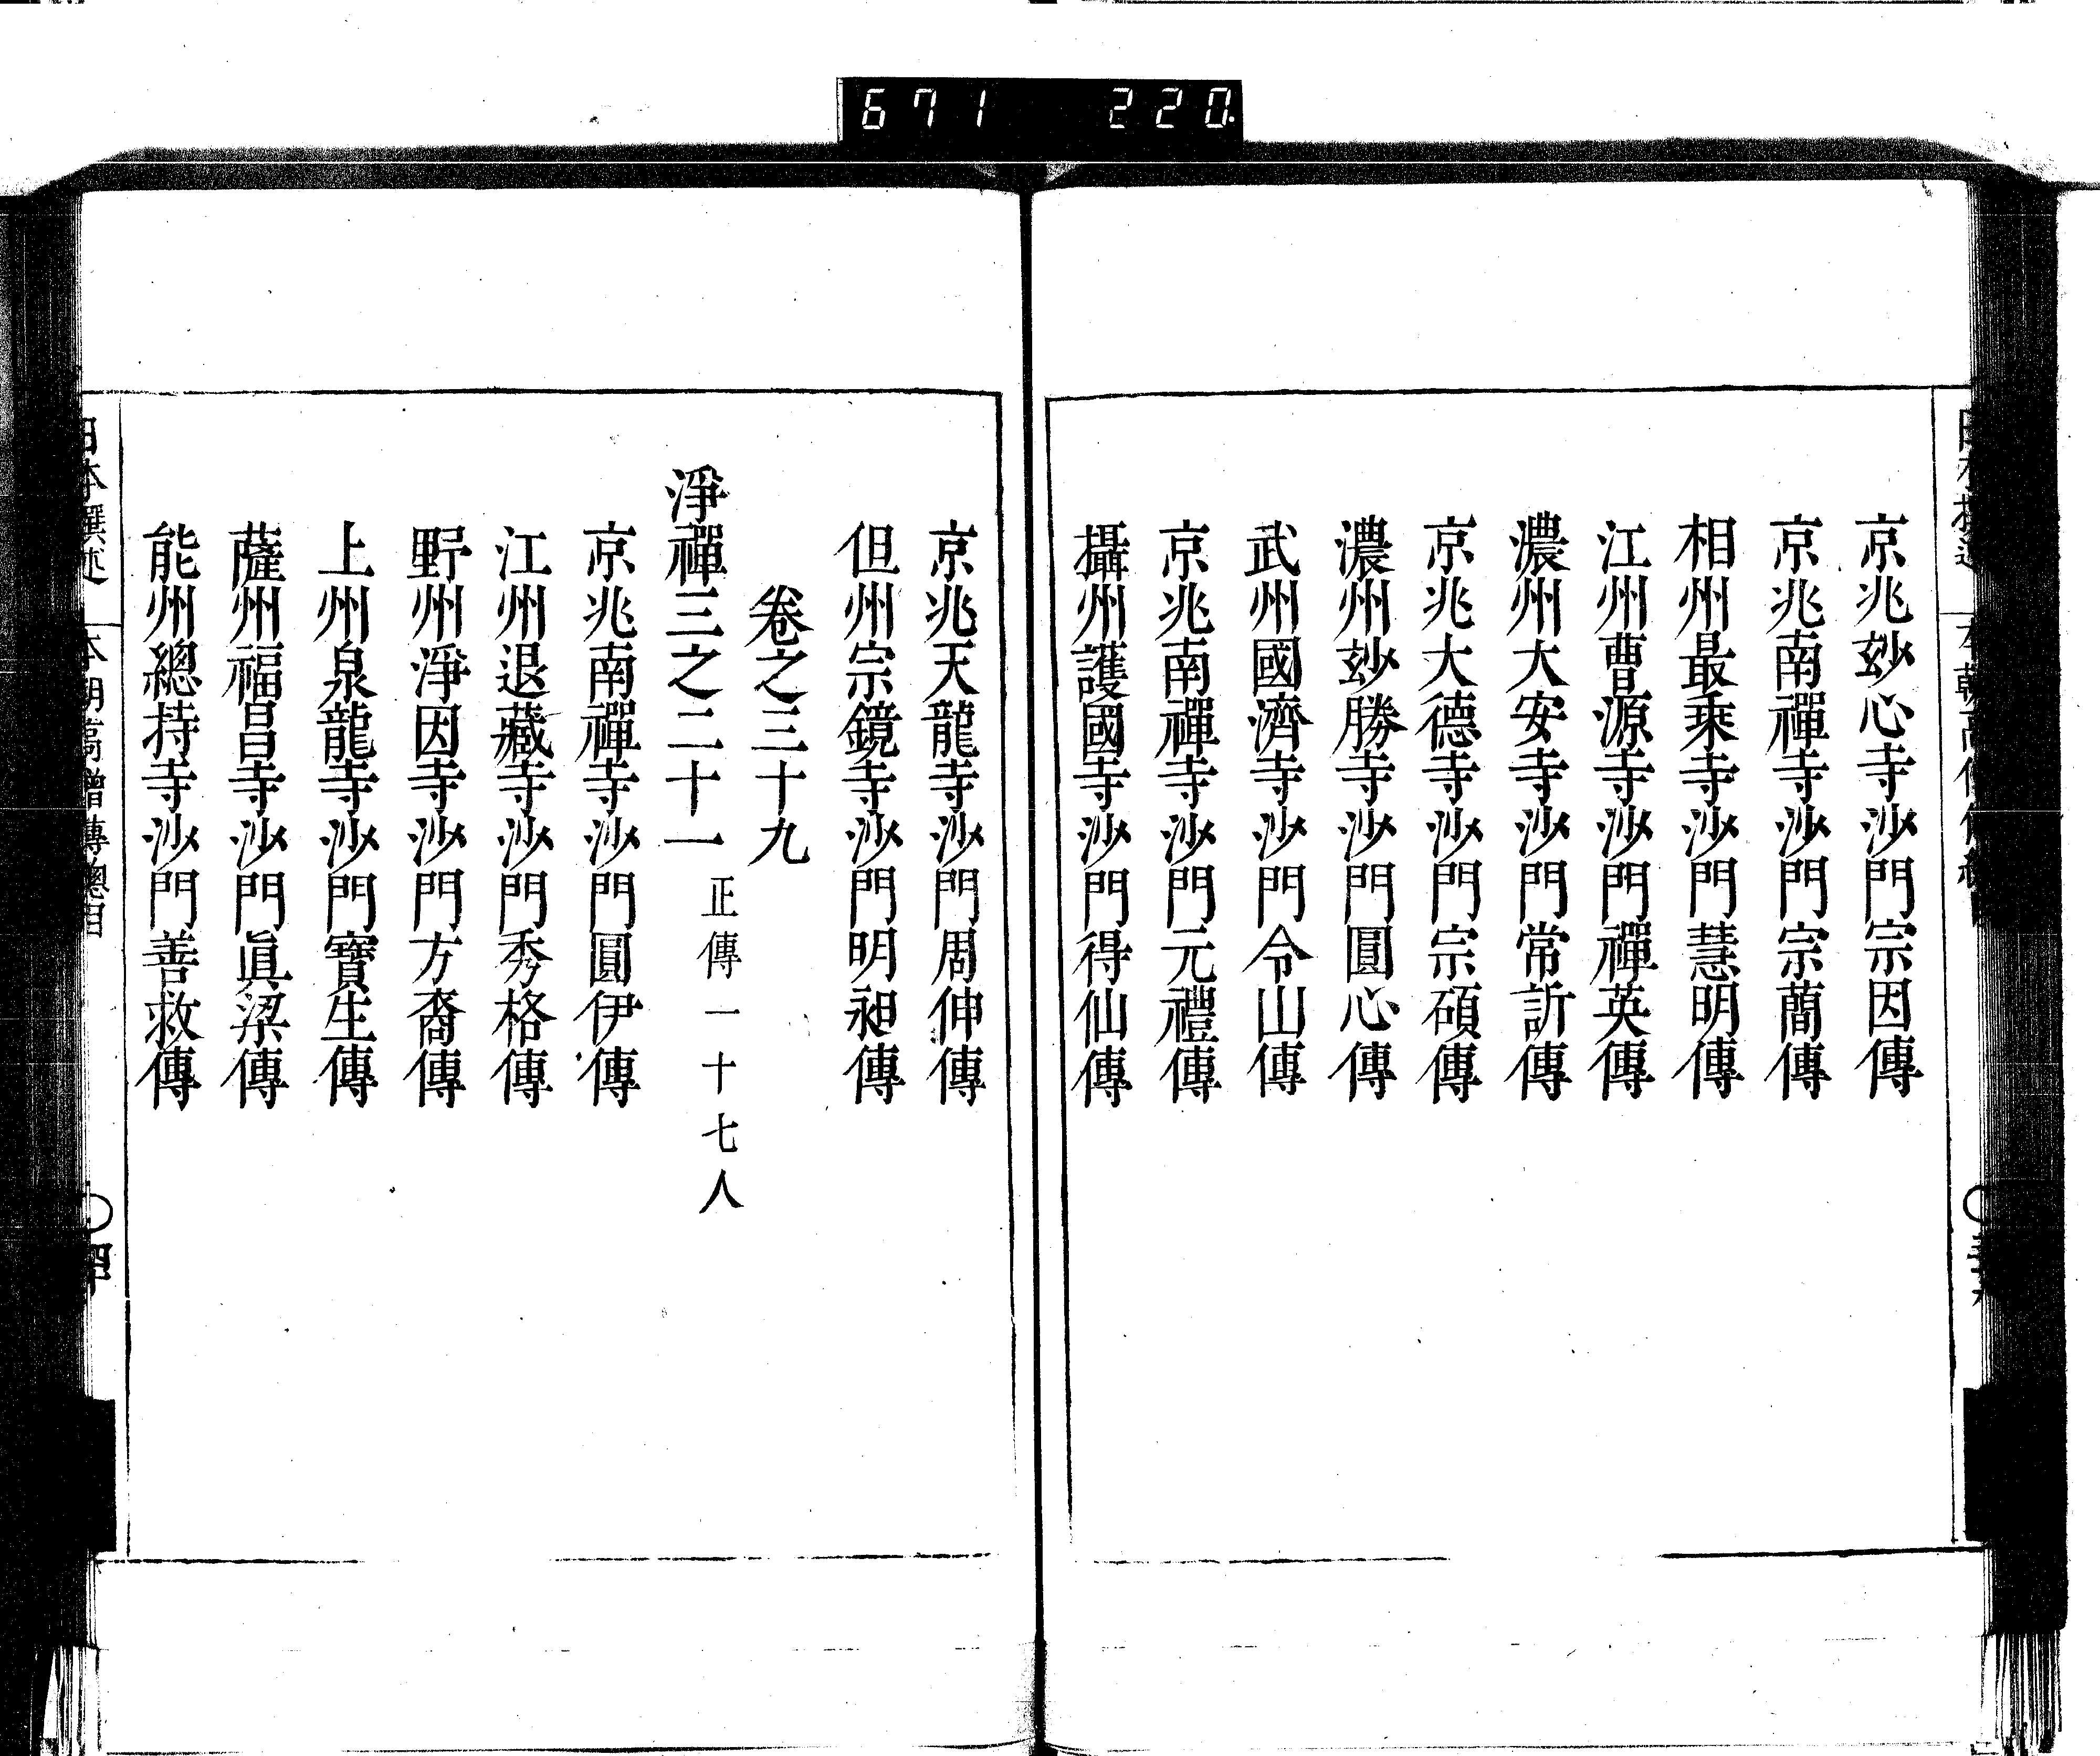 671 220
京兆玅心寺沙門宗因傳
京兆南禪寺沙門宗蕳傳
相州最乘寺沙門慧明傳
江州曹源寺沙門禪英傳
濃州大安寺沙門常訢傳
京兆大德寺沙門宗碩傳
濃州玅勝寺沙門圓心傳
武州國濟寺沙門令山傳
京兆南禪寺沙門元禮傳
攝州護國寺沙門得仙傳
京兆天龍寺沙門周伸傳
但州宗鏡寺沙門明昶傳
卷之三十九
淨禪三之二十一 正傳一十七人
京兆南禪寺沙門圓伊傳
江州退藏寺沙門秀格傳
野州淨因寺沙門方裔傳
上州泉龍寺沙門寶生傳
薩州福昌寺沙門眞梁傳
能州總持寺沙門善救傳
日本撰述 本朝高僧傳總目